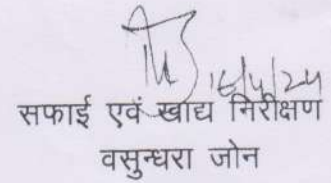 16/4/24
सफाई एवं खाद्य निरीक्षण
वसुन्धरा जोन